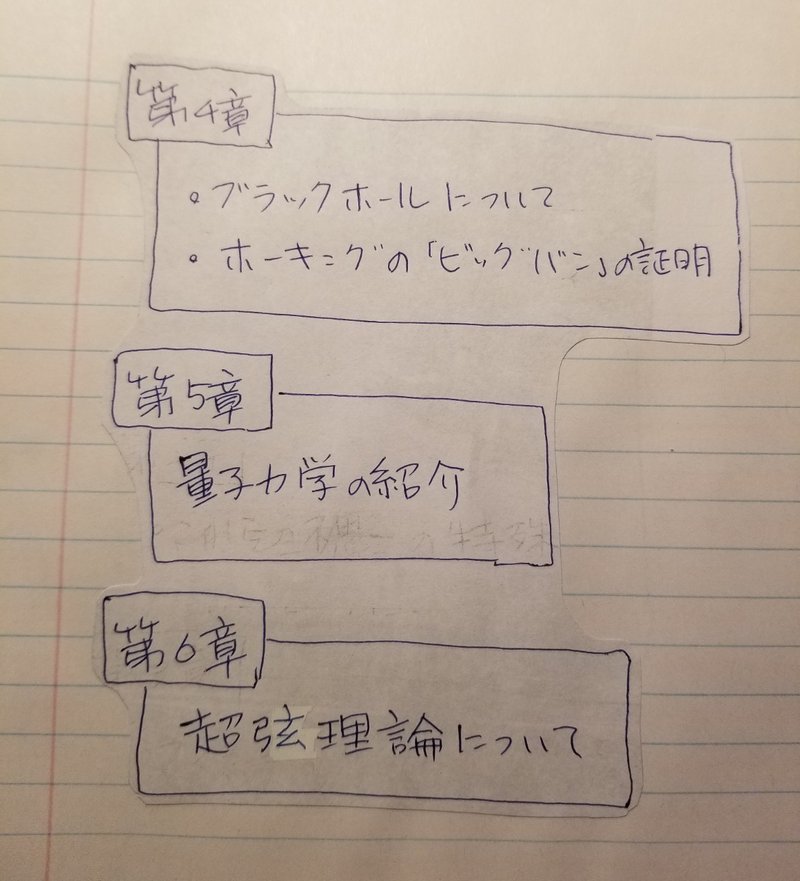 第4章
・ブラックホールについて
・ホーキングの「ビッグバン」の証明
第5章
量子力学の紹介
の特殊
第6章
超弦理論について